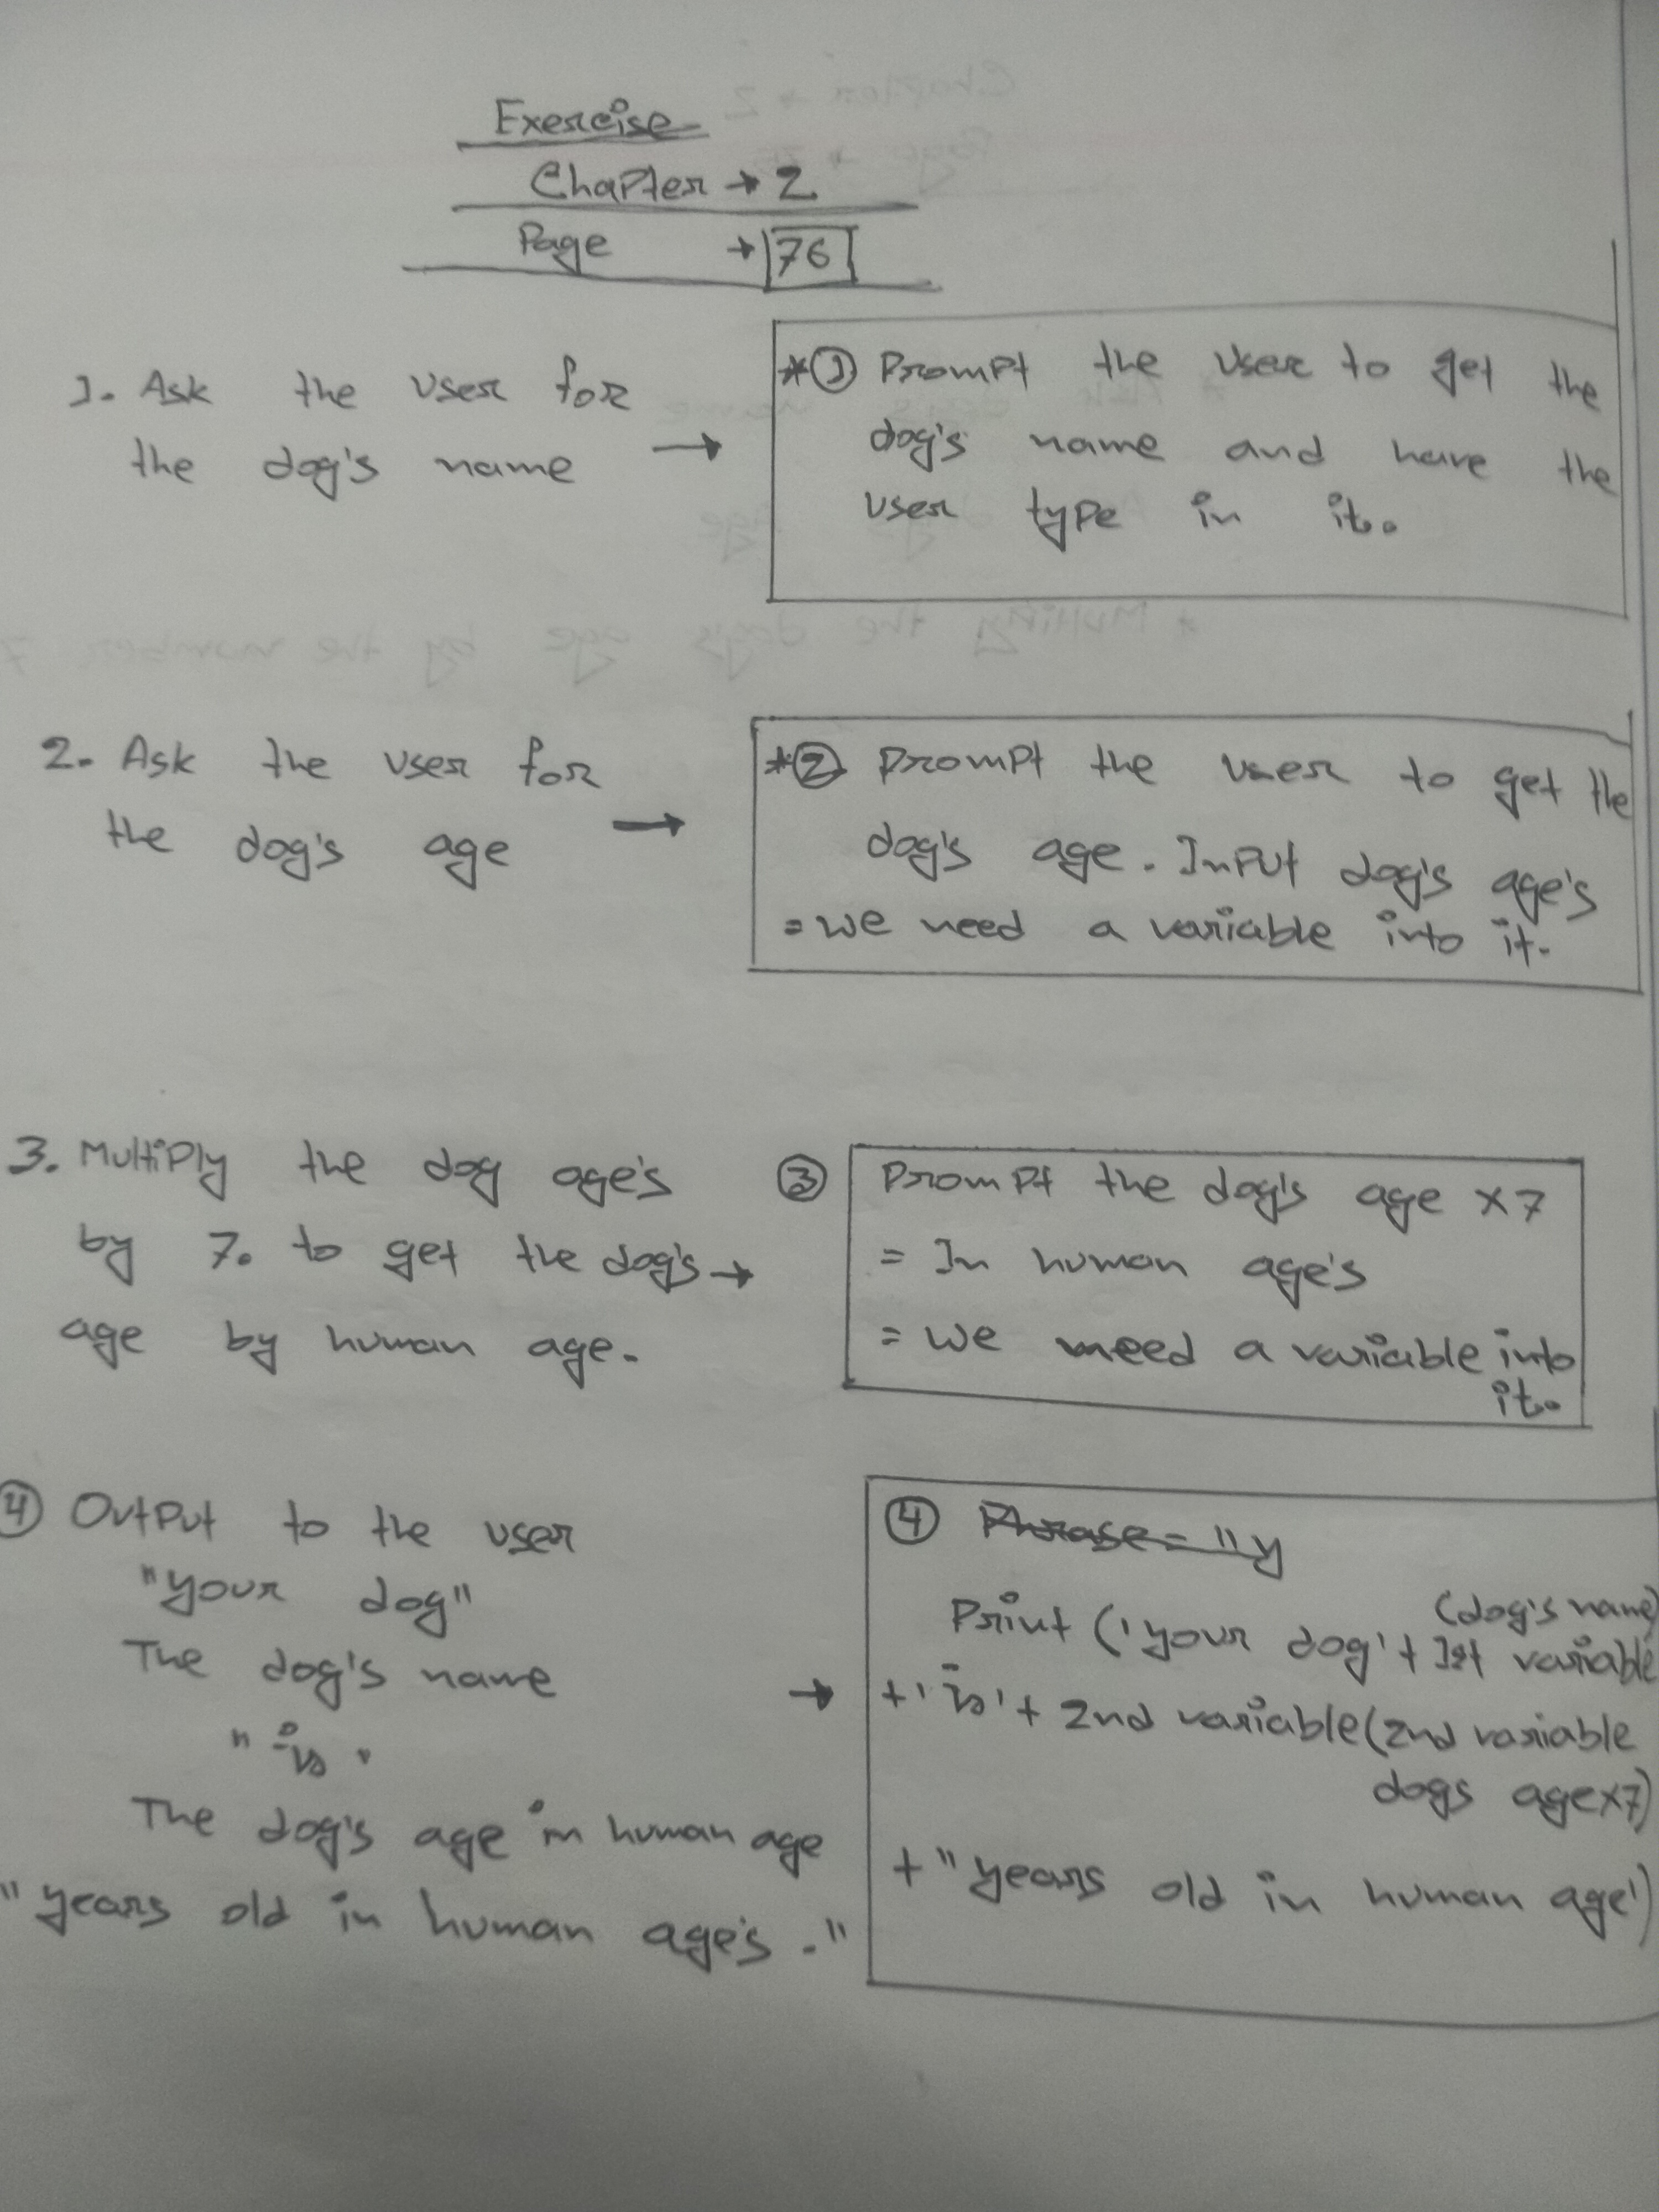 Exercise
Chapter → 2
Page → 76
1. Ask the user for
the dog's name →
*① Prompt the user to get the
dog's name and have the
user type in it.
2. Ask the user for
the dog's age →
*② Prompt the user to get the
dog's age. Input dog's age's
= we need a variable into it.
3. Multiply the dog age's
by 7. to get the dog's →
age by human age.
③ Prompt the dog's age x7
= In human age's
= we need a variable into
it.
④ Output to the user
"your dog"
The dog's name →
"is"
The dog's age in human age
"years old in human age's ."
④ Phrase = "y
(dog's name)
Print ('your dog' + 1st variable
+ 'is' + 2nd variable (2nd variable
dogs age x7)
+ "years old in human age')
Chapter → 2
Page →
* Ask dog's name
Age
* Multiply the dog's age by the number 7